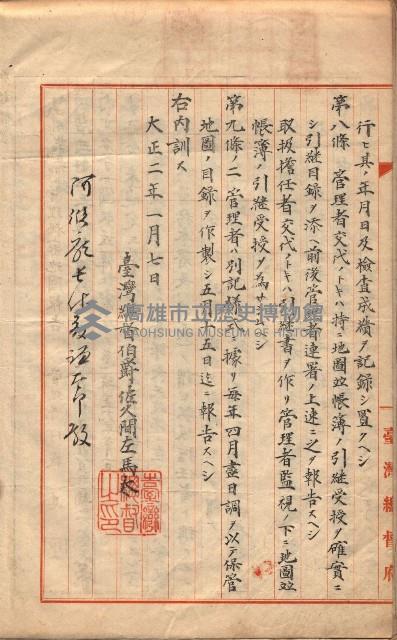 行ヒ其ノ年月日及檢査成績ヲ記録シ置クヘシ
第八條 管理者交代ノトキハ特ニ地圖竝帳簿ノ引継受授ヲ確實ニ
シ引継目録ヲ添ヘ前後管理者連署ノ上速ニ之ヲ報告スヘシ
取扱擔任者交代ノトキハ引継書ヲ作リ管理者監視ノ下ニ地圖竝
帳簿ノ引継受授ヲ為サシムヘシ
第九條ノ二 管理者ハ別記樣式ニ據リ毎年四月盡日調ヲ以テ保管
地圖ノ目録ヲ作製シ五月十五日迄ニ報告スヘシ
右内訓ス
大正二年一月七日
臺灣總督伯爵佐久間左馬太
臺灣總督之印
阿緱廳長佐藤謙太郎殿
臺灣總督府
高雄市立歷史博物館
KAOHSIUNG MUSEUM OF HISTORY